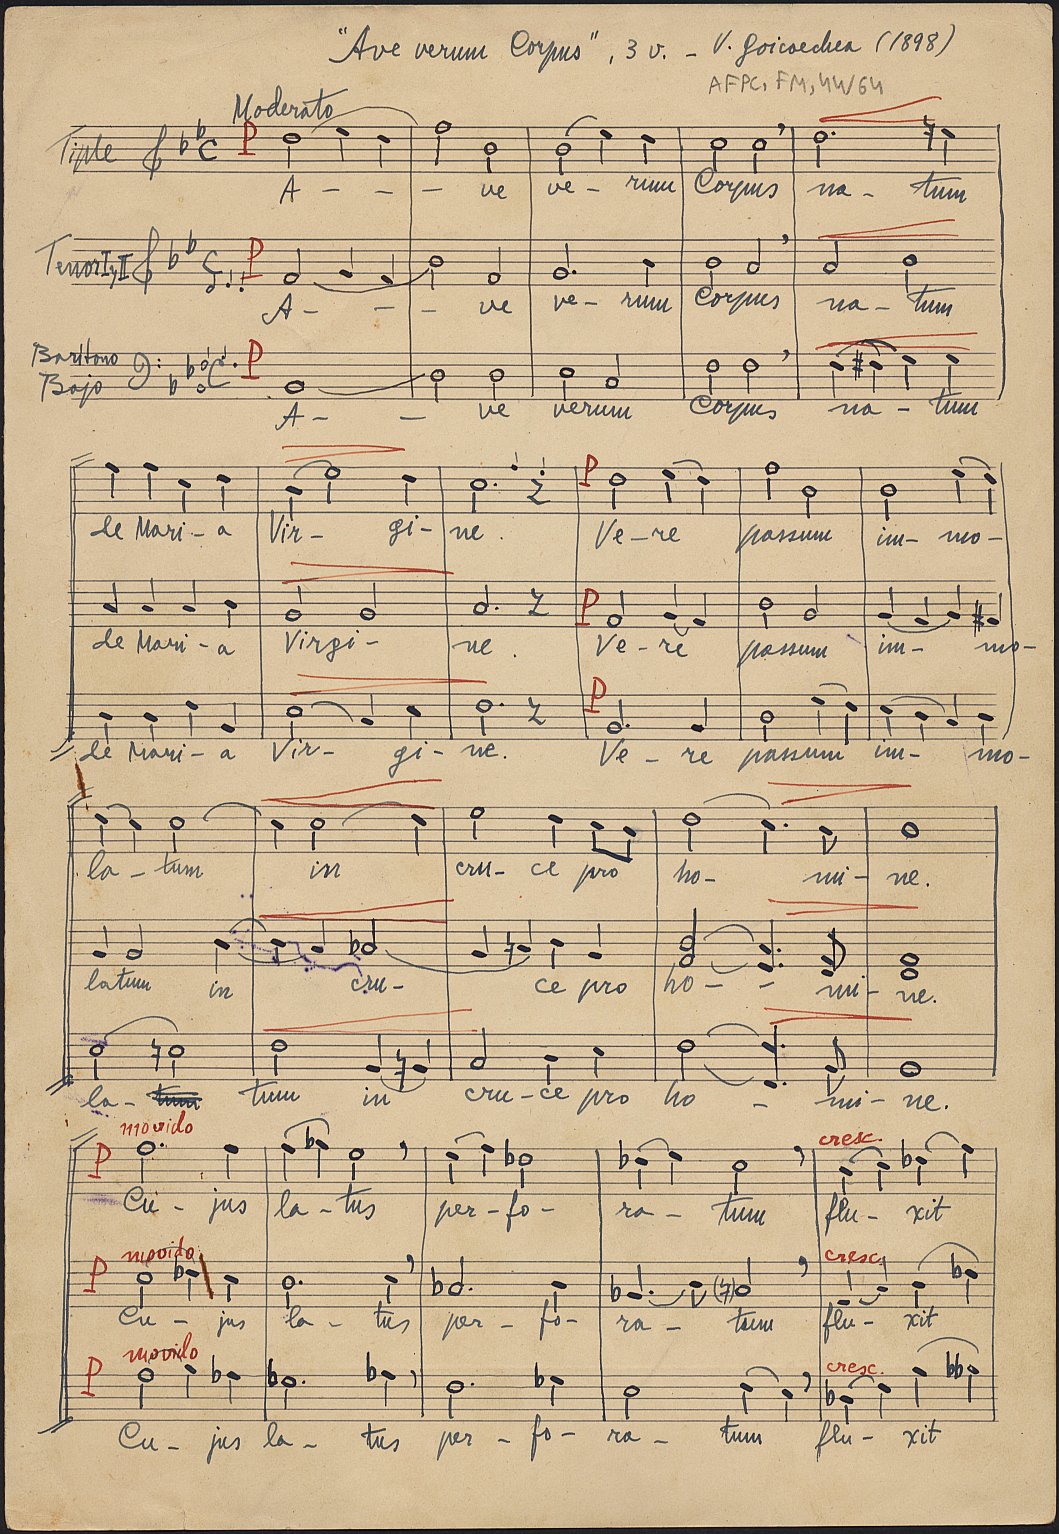 "Ave verum Corpus", 3 v. - V. Goicoechea (1898)
AFPC, FM, 44/64
Moderato
Tiple P
A - - - ve ve - rum Corpus na - tum
Tenor I y II P
A - - - ve ve - rum Corpus na - tum
Baritono
Bajo P
A - - ve verum Corpus na - tum
P
de Mari - a Vir - gi - ne. Ve - re passum im - mo -
P
de Mari - a Virgi - ne. Ve - re passum im - mo -
P
de Mari - a Vir - gi - ne. Ve - re passum im - mo -
la - tum in cru - ce pro ho - mi - ne.
latum in cru - ce pro ho - - mi - ne.
la - tum tum in cru - ce pro ho - mi - ne.
P movido cresc.
Cu - jus la - tus per - fo - ra - tum flu - xit
P movido cresc.
Cu - jus la - tus per - fo - ra - tum flu - xit
P movido cresc.
Cu - jus la - tus per - fo - ra - tum flu - xit